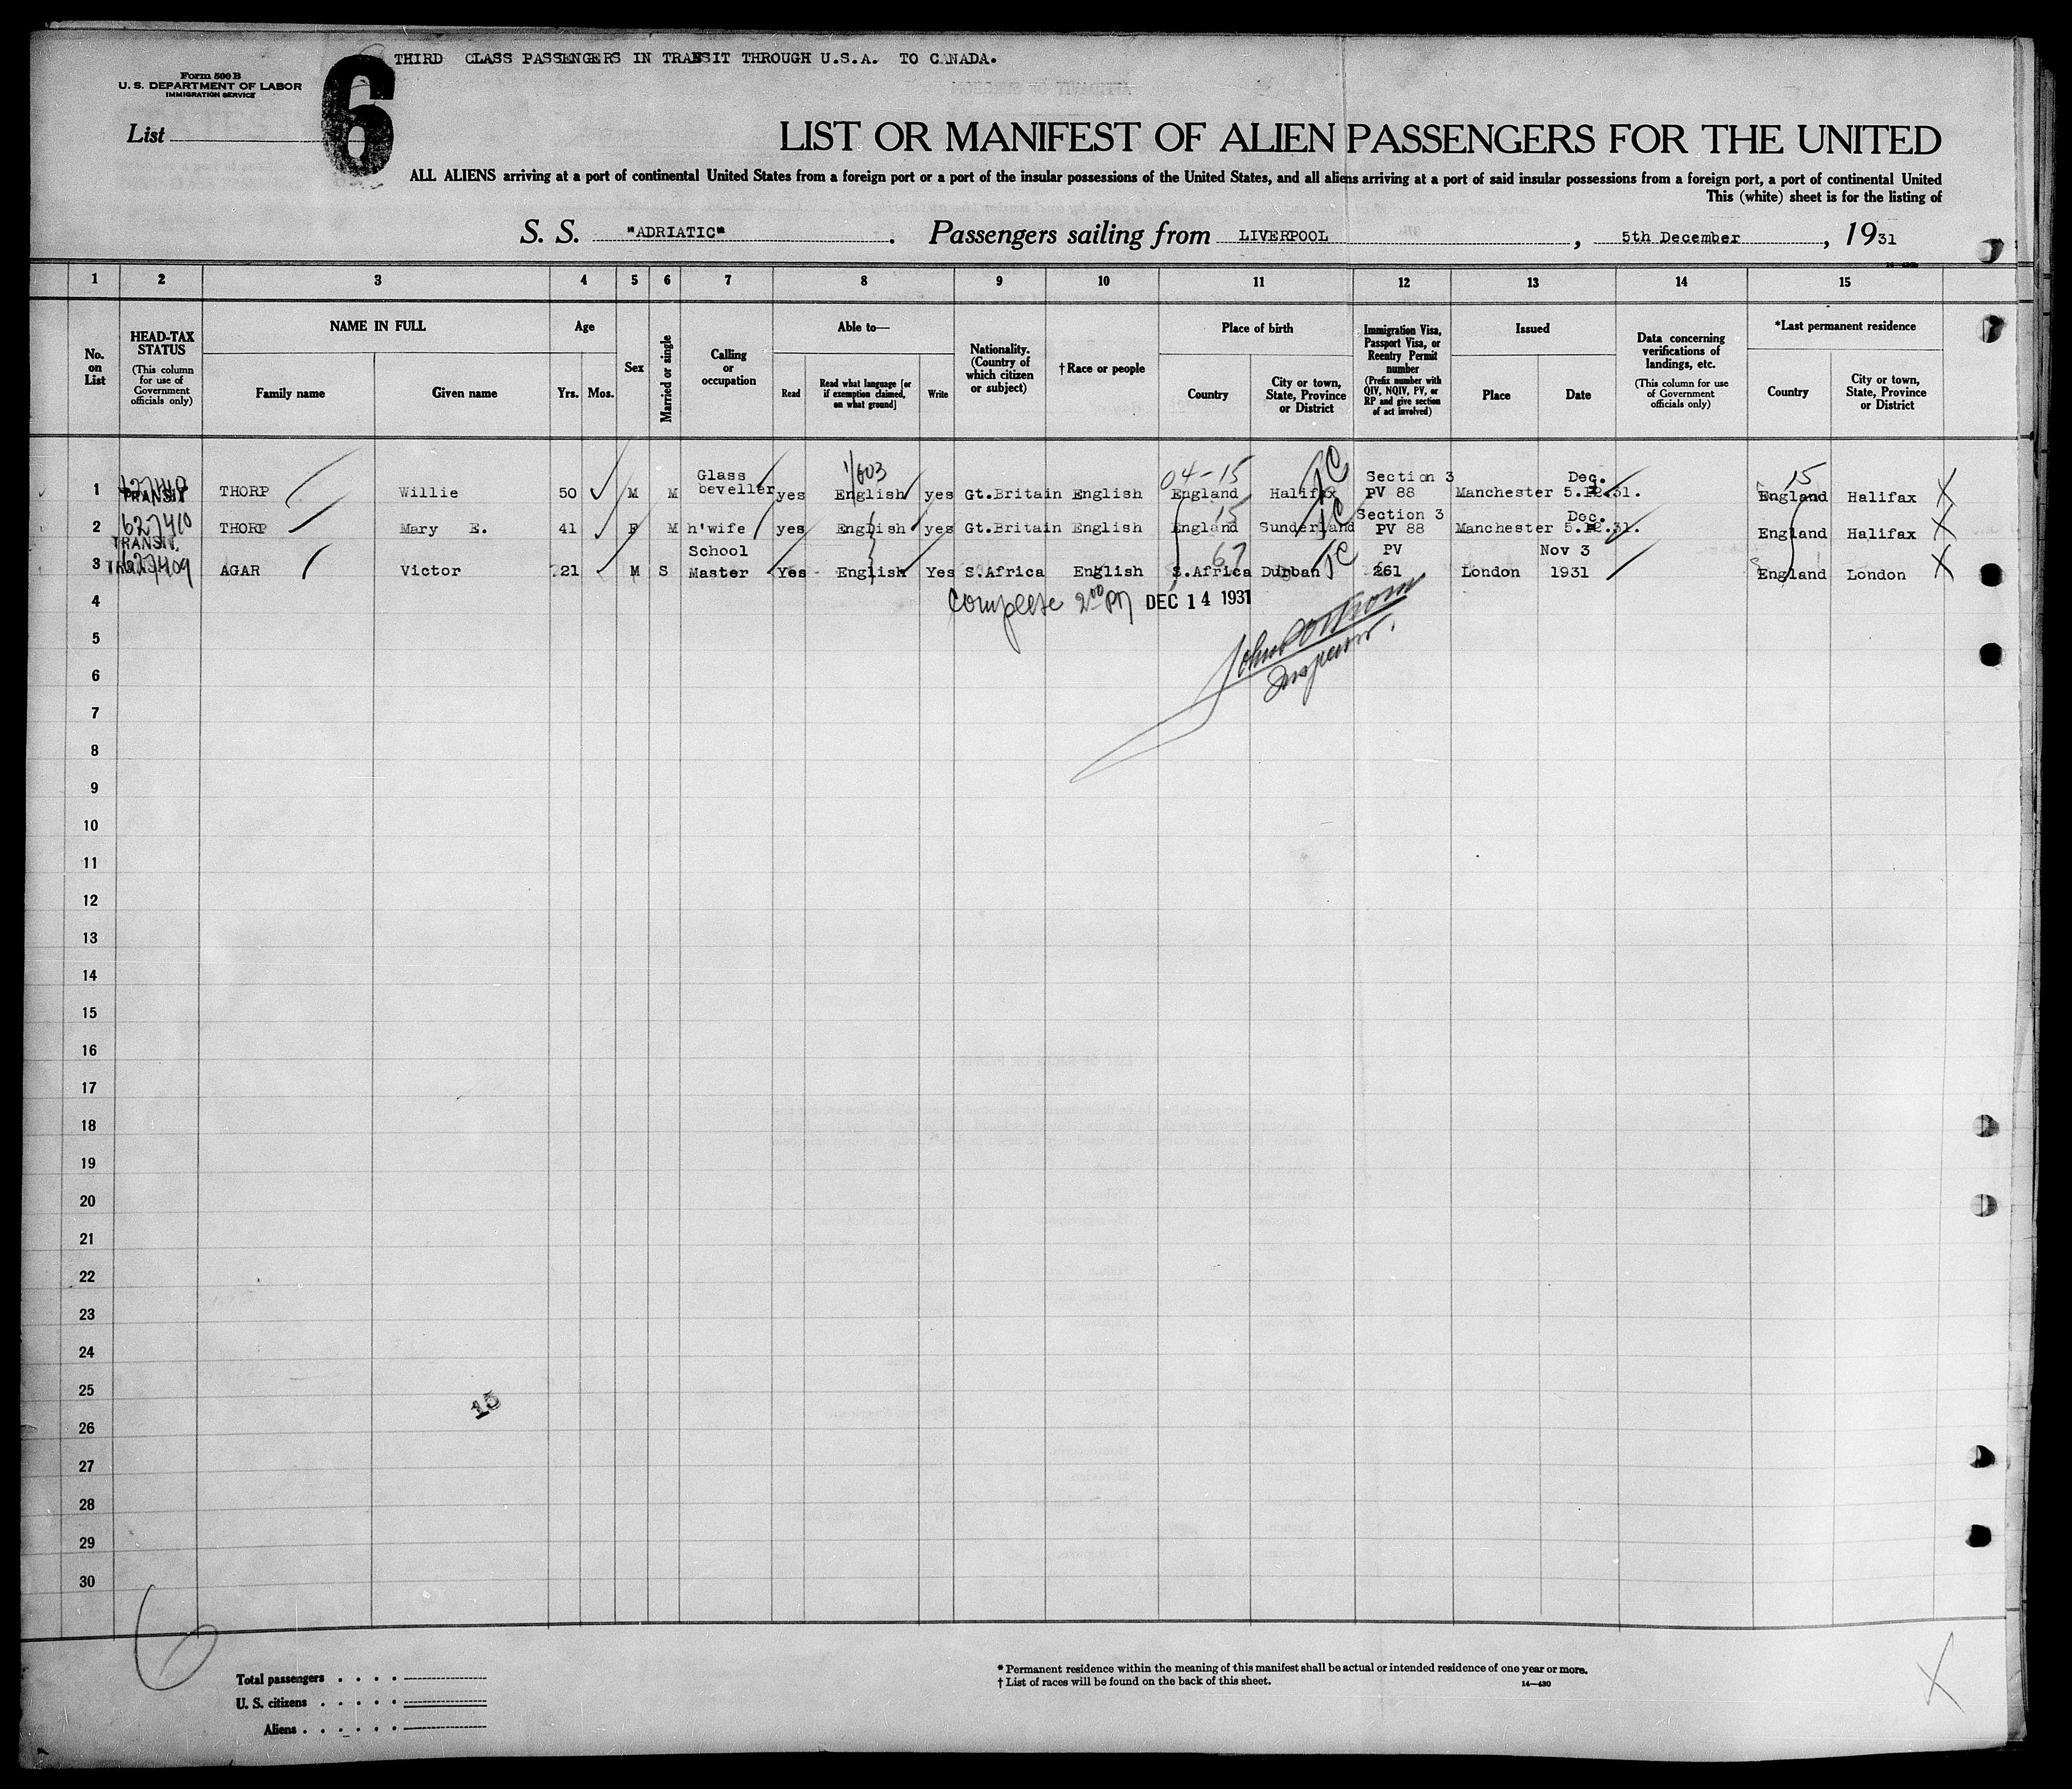 THIRD CLASS PASSENGERS IN TRANSIT THROUGH U.S.A. TO CANADA.
Form 500 B
U. S. DEPARTMENT OF LABOR
IMMIGRATION SERVICE
List 6
LIST OR MANIFEST OF ALIEN PASSENGERS FOR THE UNITED
ALL ALIENS arriving at a port of continental United States from a foreign port or a port of the insular possessions of the United States, and all aliens arriving at a port of said insular possessions from a foreign port, a port of continental United
This (white) sheet is for the listing of
S. S. "ADRIATIC". Passengers sailing from LIVERPOOL, 5th December, 1931
1 2 3 4 5 6 7 8 9 10 11 12 13 14 15
No. on List
HEAD-TAX STATUS
(This column for use of Government officials only)
NAME IN FULL
Family name
Given name
Age
Yrs.
Mos.
Sex
Married or single
Calling or occupation
Able to—
Read
Read what language [or if exemption claimed, on what ground]
Write
Nationality. (Country of which citizen or subject)
†Race or people
Place of birth
Country
City or town, State, Province or District
Immigration Visa, Passport Visa, or Reentry Permit number
(Prefix number with QIV, NQIV, PV, or RP and give section of act involved)
Issued
Place
Date
Data concerning verifications of landings, etc.
(This column for use of Government officials only)
*Last permanent residence
Country
City or town, State, Province or District
04-15
15
Glass Section 3 Dec.
1 TRANSIT THORP Willie 50 M M beveller yes English yes Gt.Britain English England Halifax PV 88 Manchester 5.12.31. England Halifax X
15 Section 3 Dec.
2 627410 TRANSIT THORP Mary E. 41 F M h'wife yes English yes Gt.Britain English England Sunderland PV 88 Manchester 5.12.31. England Halifax X
School 67 PV Nov 3
3 627409 AGAR Victor 21 M S Master Yes English Yes S.Africa English S.Africa Durban 261 London 1931 England London X
4 Complete 2 00 PM DEC 14 1931
5
Inspector.
6
7
8
9
10
11
12
13
14
15
16
17
18
19
20
21
22
23
24
25
15
26
27
28
29
30
6
Total passengers
U. S. citizens
Aliens
* Permanent residence within the meaning of this manifest shall be actual or intended residence of one year or more.
† List of races will be found on the back of this sheet.
14—430
X